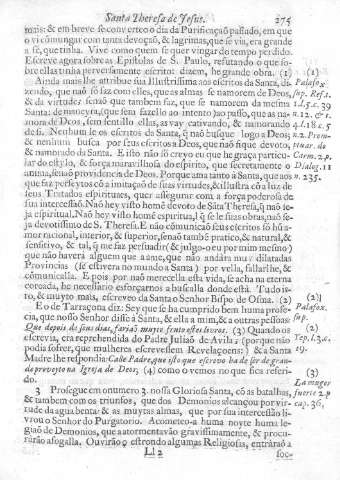 Santa Theresa de Jesus. 275
mais: & em breve se converteo o dia da Purificação passado, em que
o vi comũgar com tanta devoçaõ, & lagrimas, que se via, era grande
a fè, que tinha. Vive como quem se quer vingar do tempo perdido.
Escreve agora sobre as Epistolas de S. Paulo, refutando o que so-
bre ellas tinha perversamente escrito: dizem, he grande obra. (1) (1)
Ainda mais lhe attribue sua Illustrissima aos escritos da Santa, di- Palafox
zendo, que naõ só faz com elles, que as almas se namorem de Deos, sup. Refs.
& da virtude: senaõ que tambem faz, que se namorem da mesma 1.l.5.c.39
Santa: de maneyra, que sem fazello ao intento, ao passo, que as na- n.12. & 1.
mora de Deos, sem sentillo ellas, as vay cativando, & namorando 4.l.18.c.5
de si. Nenhum le os escritos da Santa, q̃ naõ busque logo a Deos; n.2. Prom-
& nenhum busca por seus escritos a Deos, que naõ fique devoto, tuar. do
& namorado da Santa. E isto naõ só creyo eu que he graça particu- Carm. 2.p.
lar do estylo, & força maravilhosa do espirito, que secretamente o Dialog. 11
anima, senaõ providencia de Deos. Porque ama tanto à Santa, que aos n. 235.
que faz perseytos cõ a imitaçaõ de suas virtudes, & illustra cõ a luz de
seus Tratados espirituaes, quer assegurar com a força poderosa de
sua intercessaõ. Naõ hey visto homẽ devoto de Sãta Theresa, q̃ naõ se-
ja espiritual. Naõ hey visto homẽ espiritual, q̃ se le suas obras, naõ se-
ja devotissimo de S. Theresa. E naõ cõmunicaõ seus escritos só hũ a-
mor racional, interior, & superior, senaõ tambẽ pratico, & natural, &
sensitivo, & tal, q̃ me faz persuadir (& julgo-o eu por mim mesmo)
que naõ haverá alguem que a ame, que naõ andára muy dilatadas
Provincias (se estivera no mundo a Santa) por vella, fallarlhe, &
cõmunicalla. E pois por naõ merecella esta vida, se acha na eterna
coroada, he necessario esforçarnos a buscalla donde està. Tudo is-
to, & muyto mais, escreveo da Santa o Senhor Bispo de Osma. (2) (2)
E o de Tarraçona diz: Sey que se ha cumprido bem huma profe- Palafox.
cia, que nosso Senhor disse à Santa, & ella a mim, & a outras pessoas: sup.
Que depois de seus dias, fariaõ muyto fruto estes livros. (3) Quando os (2)
escrevia, era reprehendida do Padre Juliaõ de Avila; (porque naõ Yep. l.3.c.
podia sofrer, que mulheres escrevessem Revelaçoens:) & a Santa 19.
Madre lhe respondia: Calle Padre, que isto que escrevo ha de ser de gran-
de proveyto na Igreja de Deos; (4) como o vemos no que fica referi- (3)
do. La muger
3 Prosegue em o numero 3. nossa Gloriosa Santa, cõ as batalhas, fuerte 2.p
& tambem com os triunfos, que dos Demonios alcançou por vir- cap. 36.
tude da agua benta: & as muytas almas, que por sua intercessaõ li-
vrou o Senhor do Purgatorio. Acometeo-a huma noyte huma le-
giaõ de Demonios, que a atormentavaõ gravissimamente, & procu-
raraõ afogalla. Ouviraõ o estrondo algumas Religiosas, entráraõ a
Ll 2 soc-